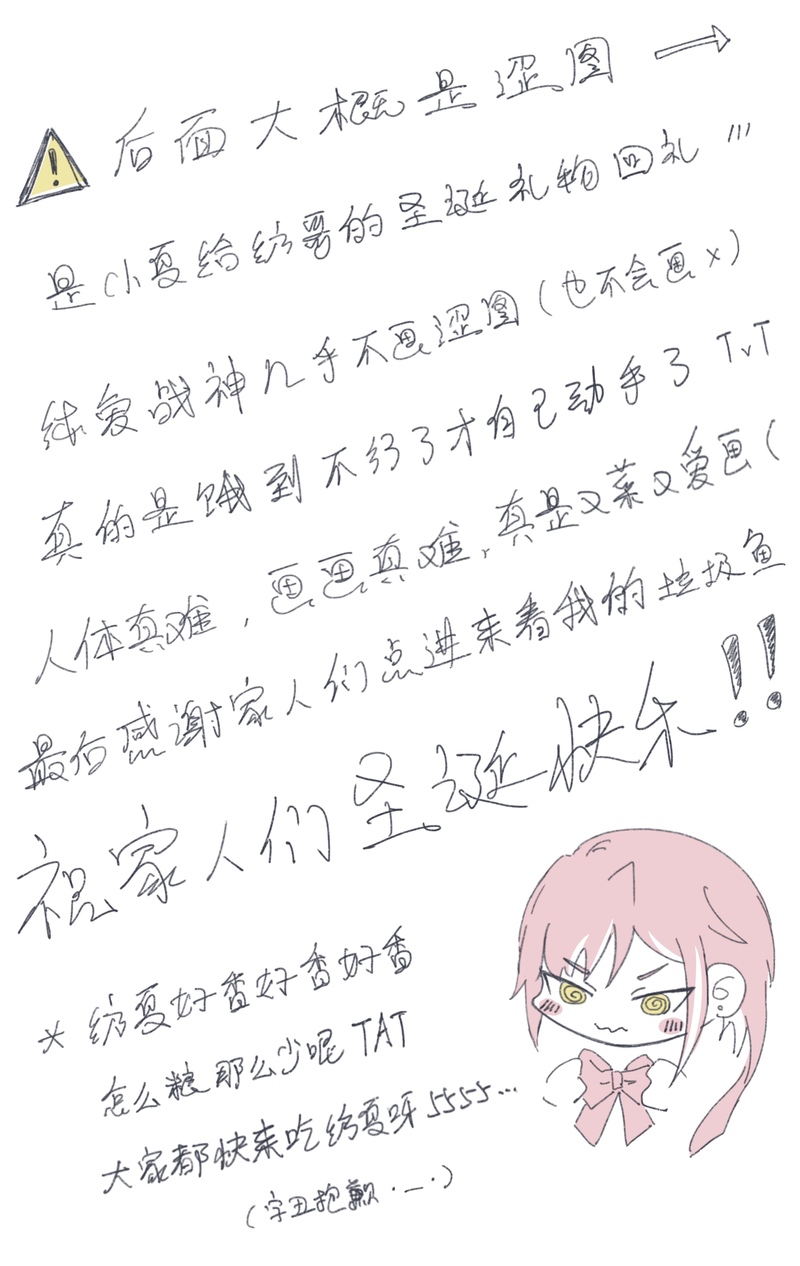 后面大概是涩图 →
是小夏给纺哥的圣诞礼物回礼
纯爱战神几乎不画涩图(也不会画x)
真的是饿到不行了才自己动手了 TvT
人体真难,画画真难,真是又菜又爱画(
最后感谢家人们点进来看我的垃圾鱼
祝家人们圣诞快乐!!
* 纺夏好香好香好香
怎么粮那么少呢 TAT
大家都快来吃纺夏呀 5555...
(字丑抱歉·_·)